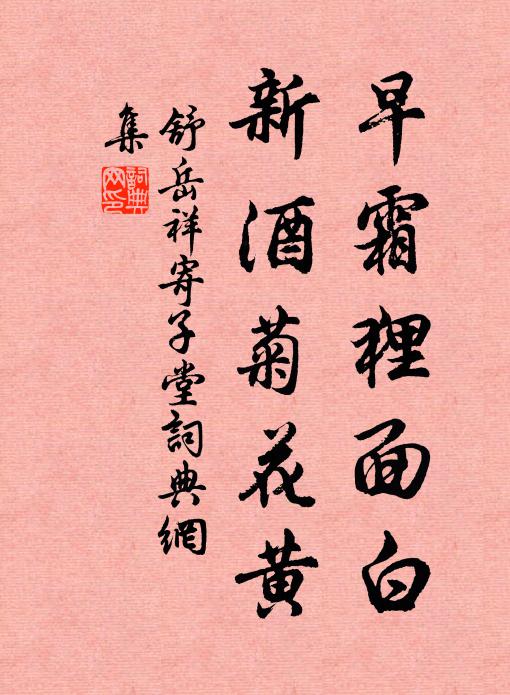 早霜狸面白
新酒菊花黄
舒岳祥寄子堂詞典網
集
詞典网印